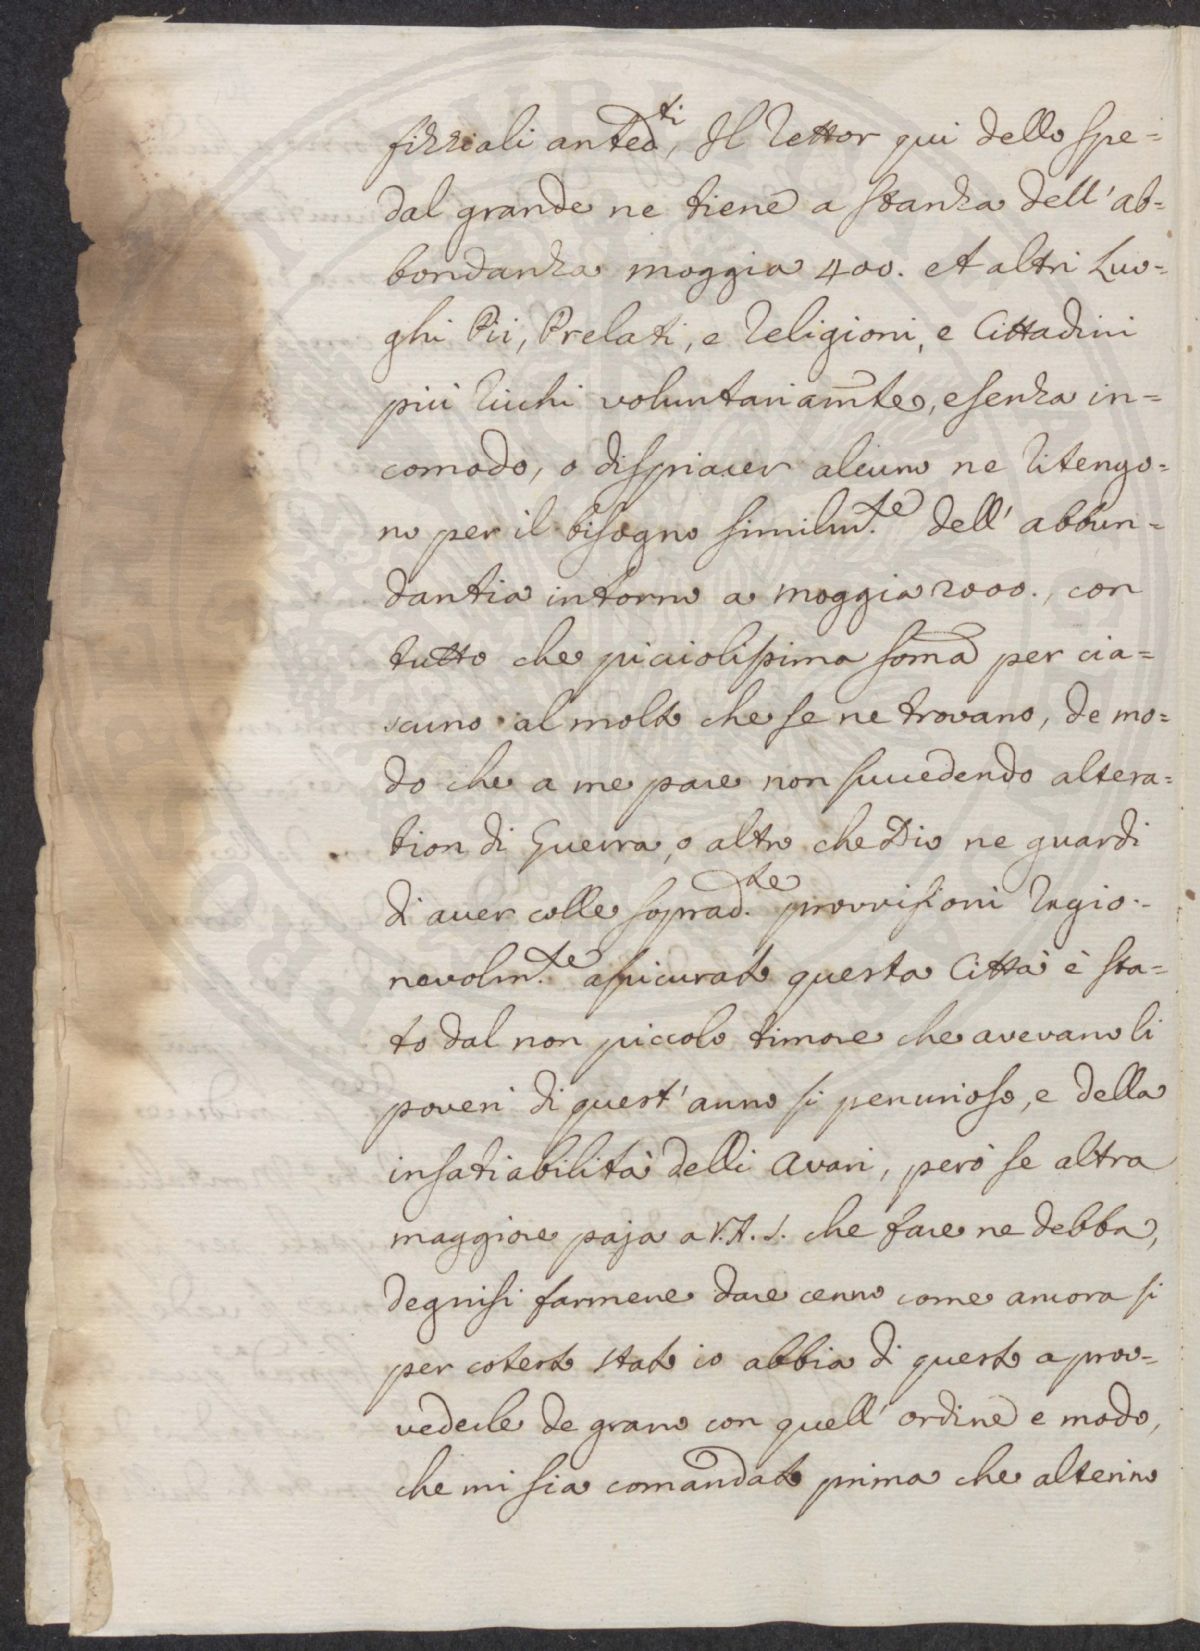 fizziali anted.ti, Il Rettor qui dello Spe=
dal grande ne tiene a stanza dell'ab=
bondanza moggia 400. et altri Luo=
ghi Pii, Prelati, e Religioni, e Cittadini
più Ricchi voluntariam̃te, e senza in=
comodo, o dispiacer alcuno ne Ritengo=
no per il bisogno similm.te dell'abbun=
dantia intorno a moggia 2000., con
tutto che picciolissima som̃a per cia=
scuno al molto che se ne trovano, de mo=
do che a me pare non succedendo altera=
tion di Guerra, o altro che Dio ne guardi
di aver colle soprad.te provvisioni Ragio=
nevolm.te assicurato questa Città è sta=
to dal non piccolo timore che avevano li
poveri di quest'anno si penurioso, e della
insatiabilità delli Avari, però se altra
maggiore paja a V.A.S. che fare ne debba,
degnisi farmene dare cenno come ancora si
per cotesto stato io abbia di questo a prov=
vederle de grano con quell'ordine e modo,
che mi sia comandato prima che alterino